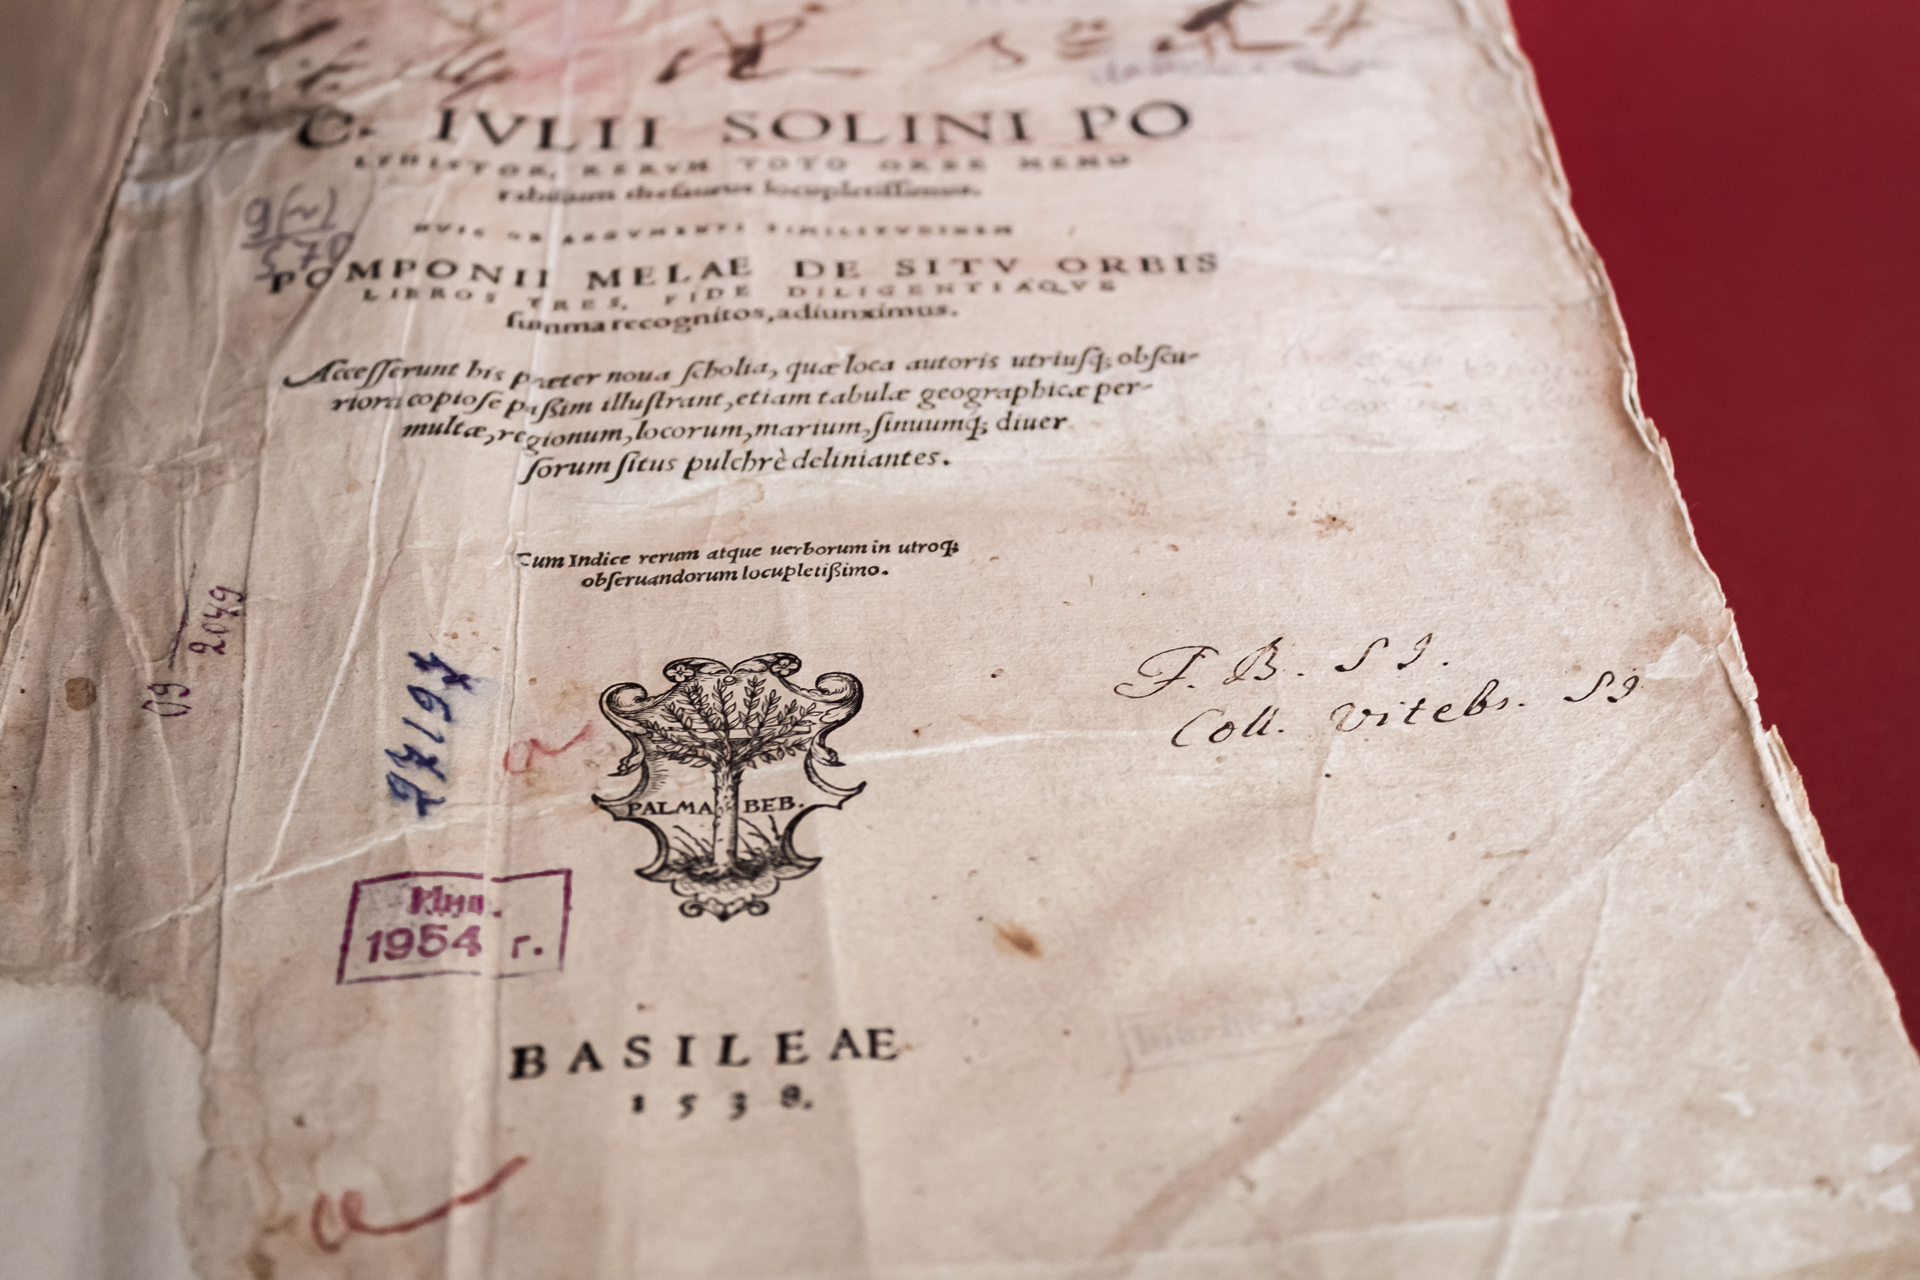 C. IVLII SOLINI PO
LYHISTOR, RERVM TOTO ORBE MEMO
rabilium thesaurus locupletissimus.
HVIC OB ARGVMENTI SIMILITVDINEM
POMPONII MELAE DE SITV ORBIS
LIBROS TRES, FIDE DILIGENTIAQVE
summa recognitos, adiunximus.
Accesserunt his præter noua scholia, quæ loca autoris utriusq; obscu-
riora copiose passim illustrant, etiam tabulæ geographicæ per-
multæ, regionum, locorum, marium, sinuumq; diuer
sorum situs pulchrè deliniantes.
Cum Indice rerum atque uerborum in utroq;
obseruandorum locupletißimo.
F. B. SI.
Coll. Vitebs. SI
2049
09
27197
a
PALMA BEB.
1954 г.
BASILEAE
1538.